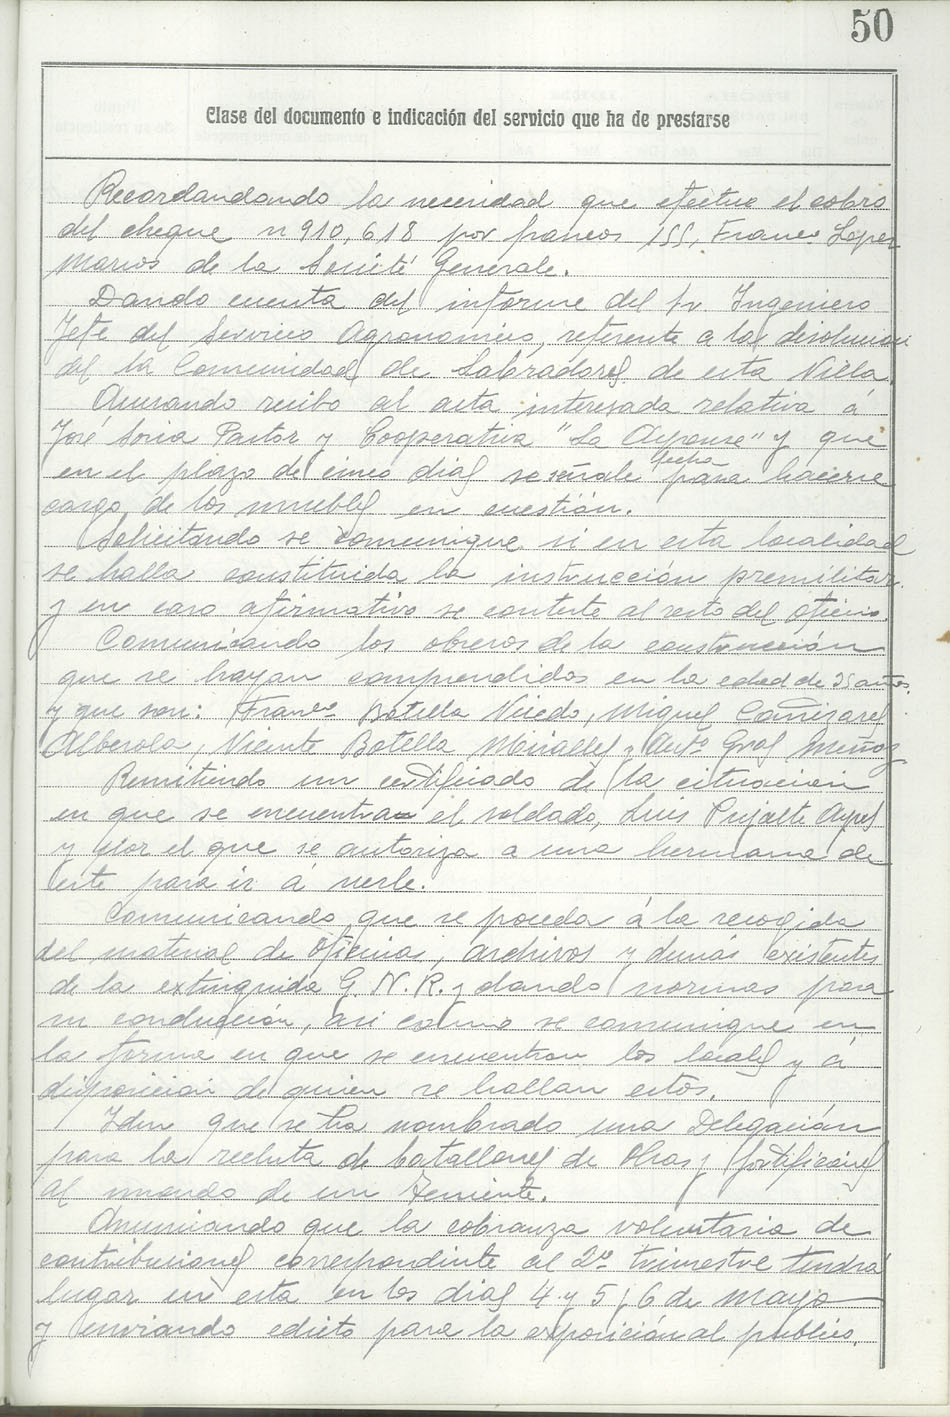 50
Clase del documento e indicación del servicio que ha de prestarse
Recordandondo la necesidad que efectue el cobro
del cheque n 910,618 por francos 155, Franco Lopez
Marcos de la Société Generale.
Dando cuenta del informe del Sr. Ingeniero
Jefe del Servicio Agronomico, referente a la disolucion
del la Comunidad de Labradores de esta Villa.
Acusando recibo al acta interesada relativa á
José Soria Pastor y Cooperativa "La Aspense" y que
en el plazo de cinco dias se señale fecha para hacerse
cargo de los muebles en cuestión.
Solicitando se comunique si en esta localidad
se halla constituida la instrucción premilitar
y en caso afirmativo se conteste al resto del oficio.
Comunicando los obreros de la construcción
que se hayan comprendidos en la edad de 35 años.
y que son: Franco Botella Vicedo, Miguel Cañizares
Alberola, Vicente Botella Miralles y Anto Gras Muñoz
Remitiendo un certificado de la situacion
en que se encuentra el soldado, Luis Pujalte
y por el que se autoriza a una hermana de
este para ir á verle.
Comunicando que se proceda á la recogida
del material de Oficinas, archivos y demás existentes
de la extinguida G. N. R. y dando normas para
su conducción, asi como se comunique en
la forma en que se encuentran los locales y á
disposicion de quien se hallan estos.
Iden que se ha nombrado una Delegación
para la recluta de batallones de Obras y fortificaciones
al mando de un Teniente.
Anunciando que la cobranza voluntaria de
contribuciones correspondiente al 2º trimestre tendrá
lugar en esta en los dias 4 y 5 y 6 de Mayo
y enviando edicto para la exposición al publico.